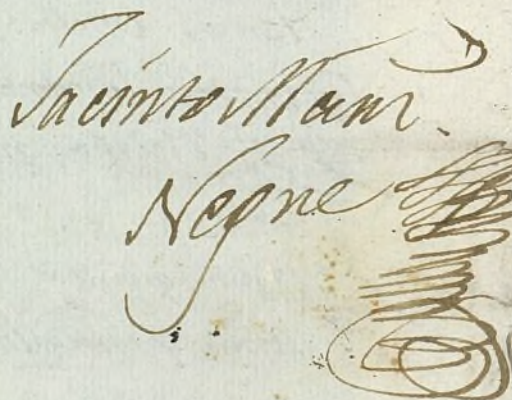 Jacinto Man!
Negne